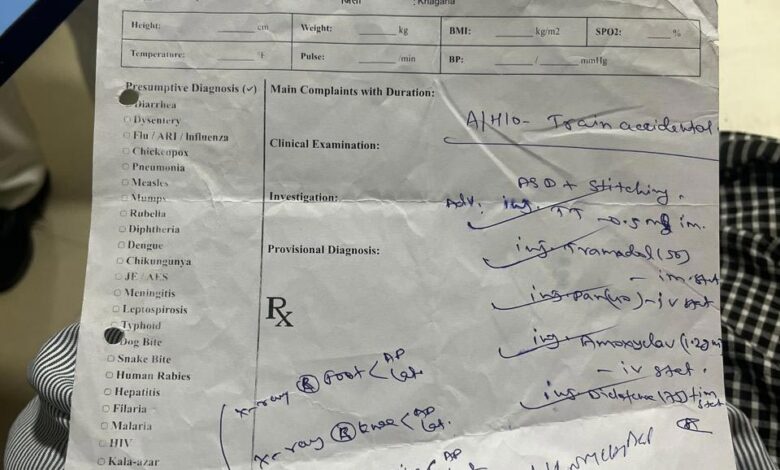 : Khagaria
Height: ____ cm Weight: ____ kg BMI: ____ kg/m2 SPO2: ____ %
Temperature: ____ °F Pulse: ____ /min BP: ____ / ____ mmHg
Presumptive Diagnosis (✓)
Diarrhea
Dysentery
Flu / ARI / Influenza
Chickenpox
Pneumonia
Measles
Mumps
Rubelia
Diphtheria
Dengue
Chikungunya
JE / AES
Meningitis
Leptospirosis
Typhoid
Dog Bite
Snake Bite
Human Rabies
Hepatitis
Filaria
Malaria
HIV
Kala-azar
Main Complaints with Duration:
A/H/O- Train accidental
Clinical Examination:
ASD + Stitching.
Investigation:
Adv. inj. TT -0.5 im.
Provisional Diagnosis:
inj. Tramadol (50)
- im stat
Rx
inj. Pan (40) - iv stat
inj. Amoxyclav (1.2gm)
- iv stat.
inj. Diclofenac (75) im
stat
x-ray (R) Foot < AP
Lat.
x-ray (R) knee < AP
Lat.
AP